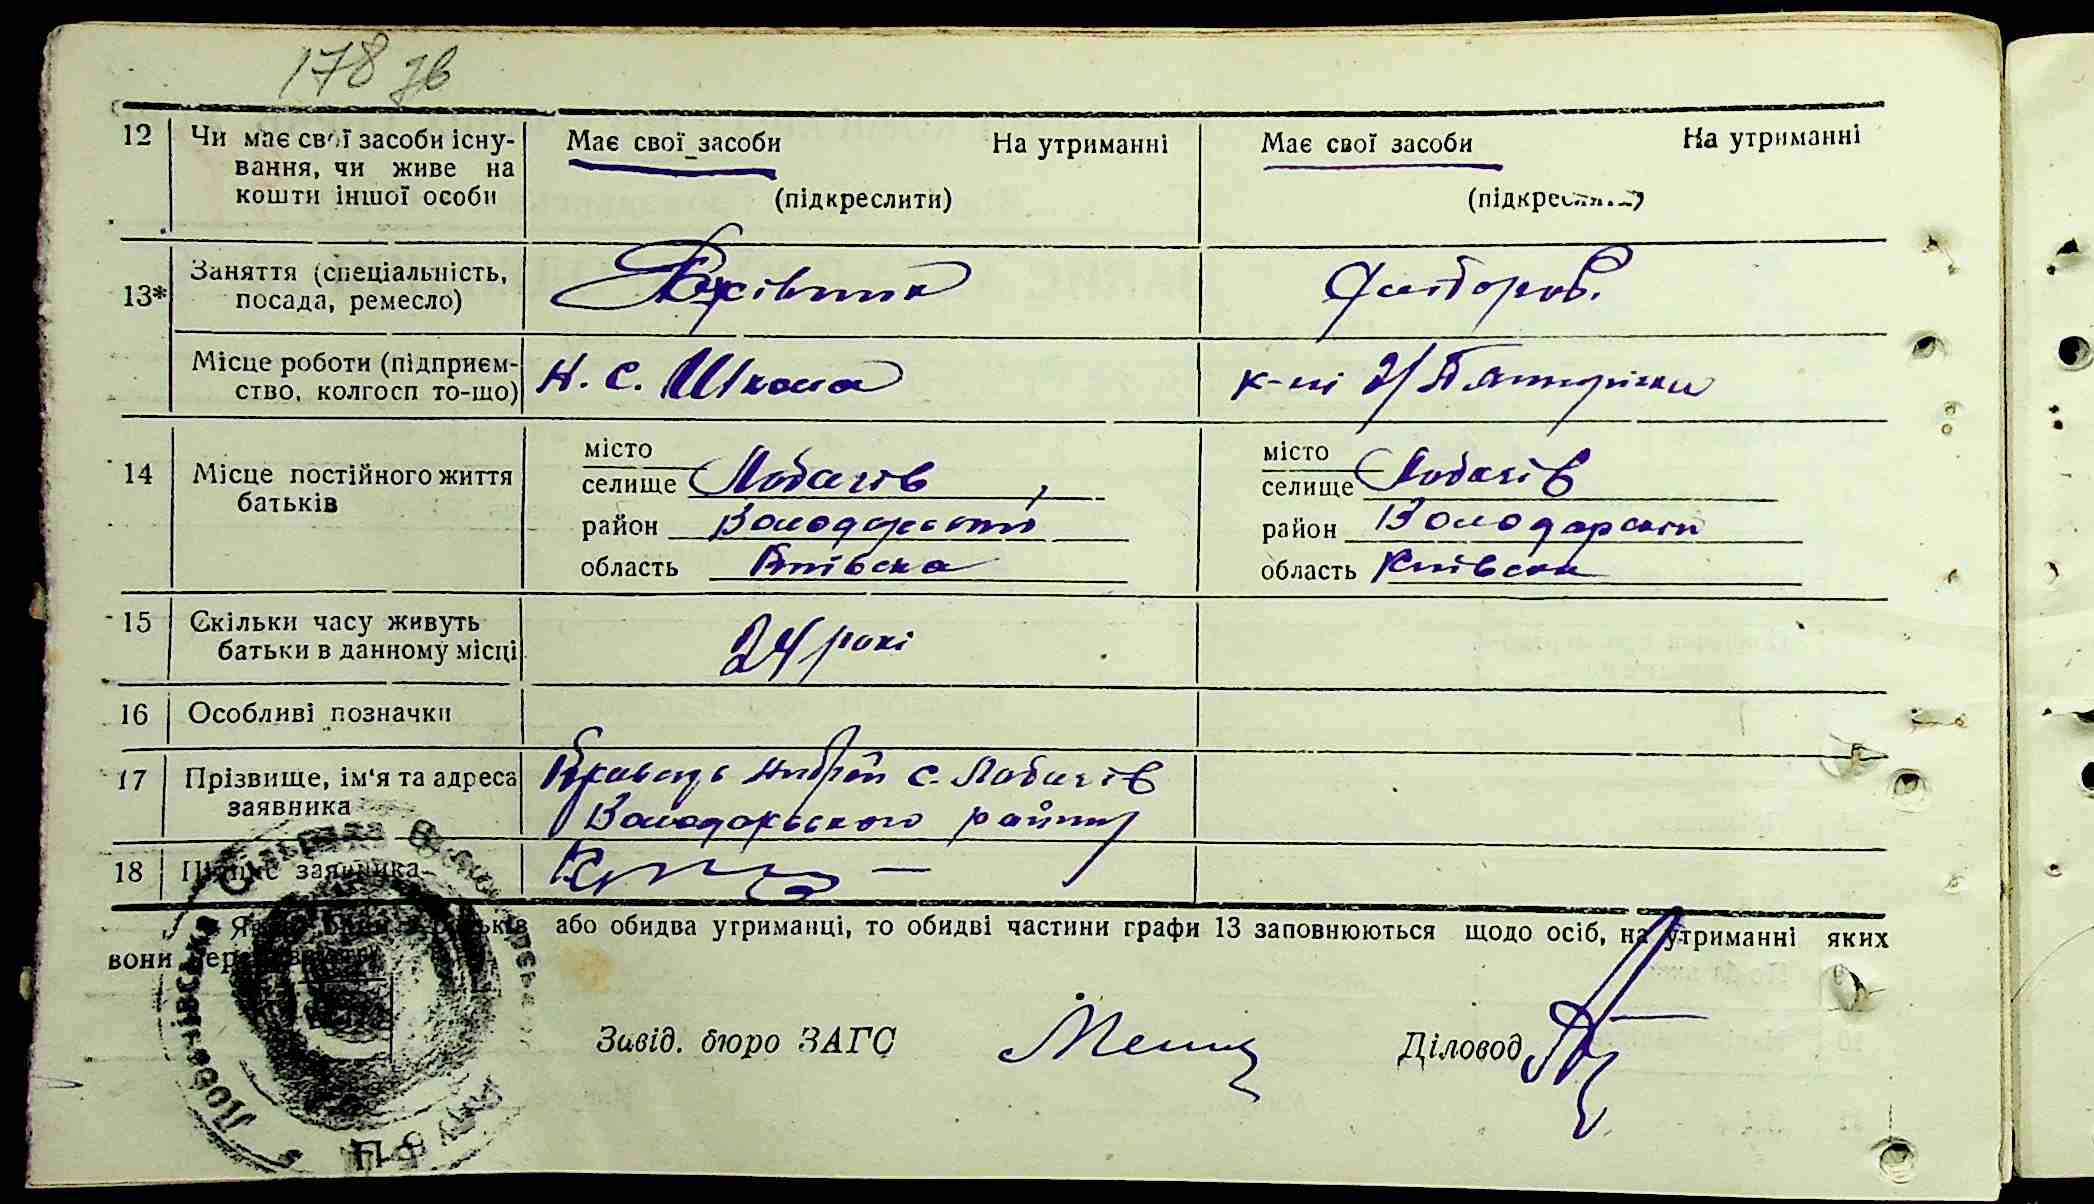 178 зв
12 Чи має свої засоби існу- Має свої засоби На утриманні Має свої засоби На утриманні
вання, чи живе на
кошти іншої особи (підкреслити) (підкреслити)
Заняття (спеціальність,
13* посада, ремесло)
Місце роботи (підприєм- Н. С. Школа
ство, колгосп то-що) к-п 2/П'ятирічки
місто місто
14 Місце постійного життя селище Лобачів, селище Лобачів
батьків район Володарський район Володарський
область Київська область Київська
15 Скільки часу живуть 24 роки
батьки в данному місці
16 Особливі позначки
17 Прізвище, ім'я та адреса Кравець Андрій с. Лобачів
заявника Володарського району
18 Підпис заявника
або обидва утриманці, то обидві частини графи 13 заповнюються щодо осіб, на утриманні яких
вони
Завід. бюро ЗАГС Діловод